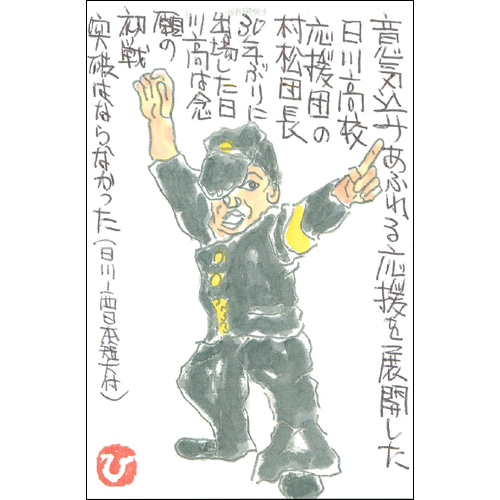 意気込みあふれる応援を展開した
日川高校
応援団の
村松団長
30年ぶりに
出場した日
川高は念
願の
初戦
突破はならなかった(日川ー西日本短大付)
ひ